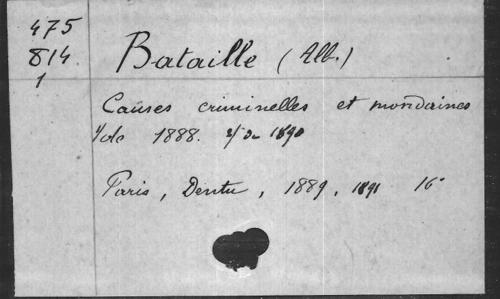 475
814
1
Bataille (Alb.)
Causes criminelles et mondaines
1/ de 1888. 2/ de 1890
Paris, Dentu, 1889, 1891 16°